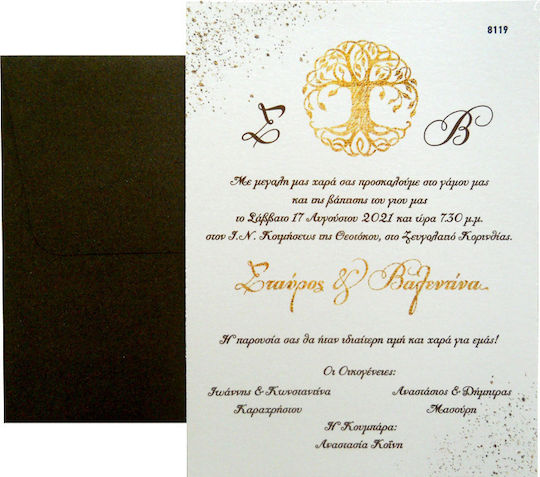 8119
Σ Β
Με μεγαλη μας χαρά σας προσκαλούμε στο γάμου μας
και της βάπτισης του γιου μας
το Σάββατο 17 Αυγούστου 2021 και τώρα 7.30 μ.μ.
στον Ι.Ν. Κοιμήσεως της Θεοτόκου, στο Ζευγολατιό Κορινθίας.
Σταύρος & Βαλεντίνα
Η παρουσία σας θα ήταν ιδιαίτερη τιμή και χαρά για εμάς!
Οι Οικογένειες:
Ιωάννης & Κωνσταντίνα Αναστάσιος & Δήμητρας
Καραχρήστου Μασούρη
Η Κουμπάρα:
Αναστασία Κοΐνη